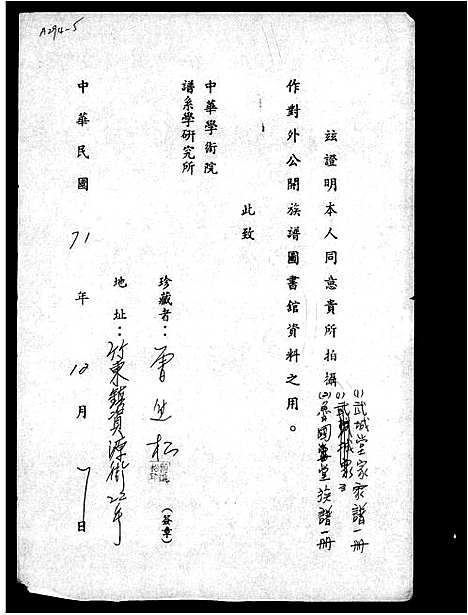 A294-5
茲證明本人同意貴所拍攝
(1)武城堂家譜一册
(2)魯國堂族譜一册
作對外公開族譜圖書館資料之用。
此致
中華學術院
譜系學研究所
珍藏者：曾 松
(簽章)
地址：竹東鎮資源街22号
中華民國 71 年 12 月 7 日